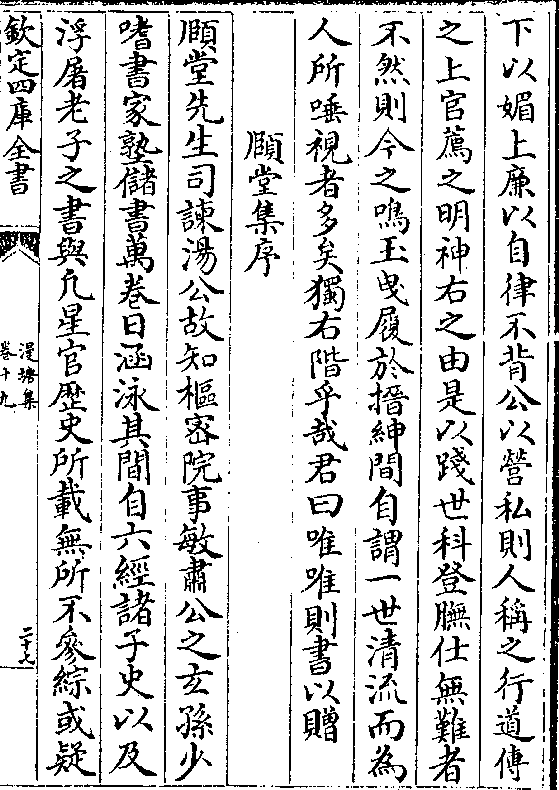 下以媚上廉以自律不背公以營私則人稱之行道傳
之上官薦之明神右之由是以踐世科登膴仕無難者
不然則今之鳴玉曳履於搢紳間自謂一世清流而為
人所唾視者多矣獨右階乎哉君曰唯唯則書以贈
頥堂集序
頥堂先生司諫湯公故知樞宻院事敏肅公之玄孫少
嗜書家塾儲書萬巻日涵泳其間自六經諸子史以及
浮屠老子之書與凡星官歴史所載無所不參綜或疑
欽定四庫全書
漫塘集
巻十九
二十七